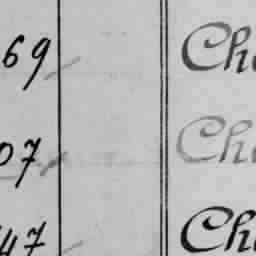 69 Cha
07 Cha
47 Cha